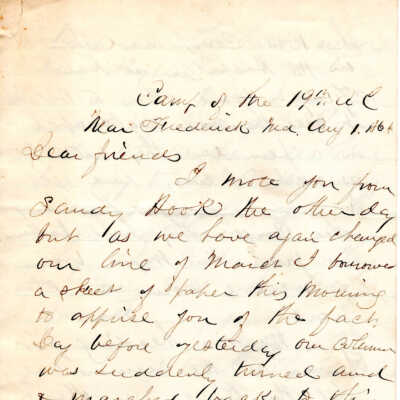 Camp of the 19th A C
Near Frederick Md. Aug 1. 1864
Dear friends
I wrote you from
Sandy Hook, the other day
but as we have again changed
our line of March I borrowed
a sheet of paper this Morning
to apprise you of the fact
Day before yesterday our Column
was suddenly turned and
& marched back to this